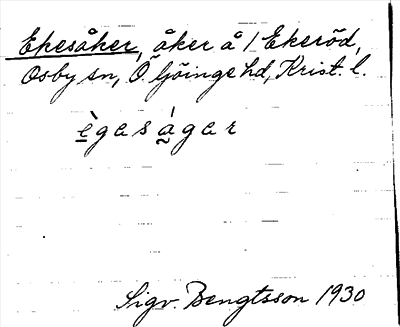 Ekesåker, åker å 1 Ekeröd,
Osby sn, Ö. Göinge hd, Krist. l.
è̲gaságar
Sigv. Bengtsson 1930